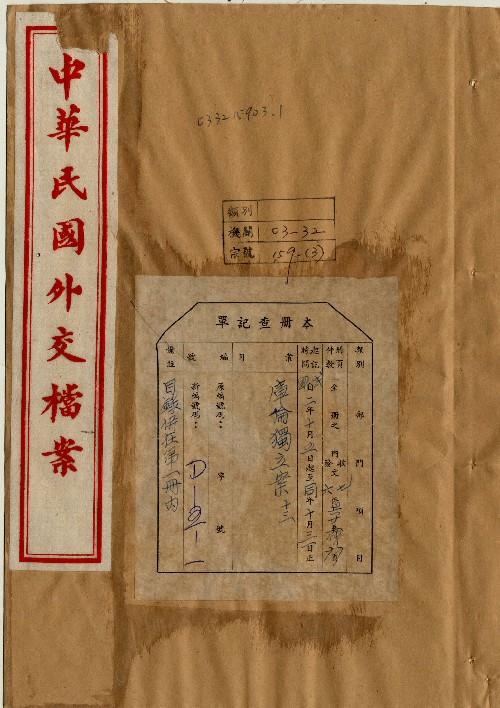 中華民國外交檔案
0332 15903.1
類別
機關 03-32
宗號 159-(3)
本冊查記單
類別 部門 項目
時頁件數 全冊之 內收發文
起記時間 自二年十月五日起至同年十月三日止
案目 庫倫獨立案 十三
編號 原編號碼： 字 號
新編號碼： D-1-9-1
備註 目錄併在第一冊內